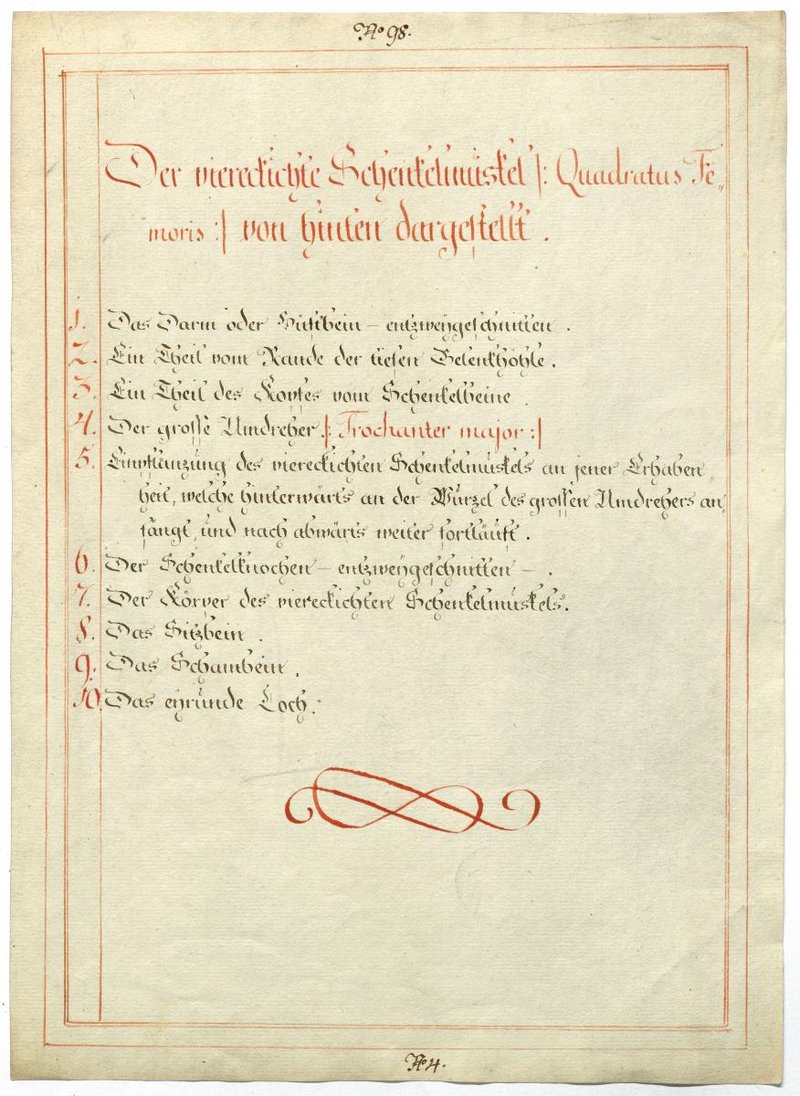 No 98.
Der viereckichte Schenkelmuskel |: Quadratus Fe„
moris :| von hinten dargestellt.
1. Das Darm oder Hüftbein – entzweygeschnitten.
2. Ein Theil vom Rande der tiefen Gelenkhöhle.
3. Ein Theil des Kopfes vom Schenkelbeine.
4. Der grosse Umdreher |: Trochanter major :|
5. Einpflanzung des viereckichten Schenkelmuskels an jener Erhaben„
heit, welche hinterwärts an der Wurzel des grossen Umdrehers an„
fängt, und nach abwärts weiter fortläuft.
6. Der Schenkelknochen – entzweygeschnitten – .
7. Der Körper des viereckichten Schenkelmuskels.
8. Das Sitzbein.
9. Das Schambein.
10. Das eyrunde Loch.
No 4.